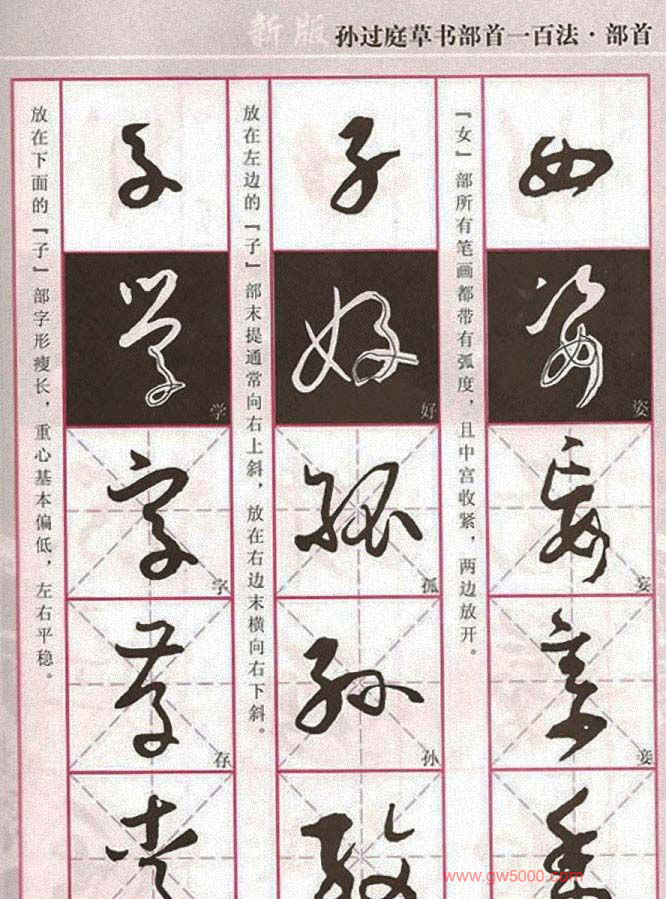 新版 孙过庭草书部首一百法·部首
『女』部所有笔画都带有弧度，且中宫收紧，两边放开。
女
姿
姿
妄
妄
妾
妾
放在左边的『子』部末提通常向右上斜，放在右边末横向右下斜。
子
好
好
孤
孤
孙
孙
放在下面的『子』部字形瘦长，重心基本偏低，左右平稳。
子
学
学
字
字
存
存
www.gw5000.com